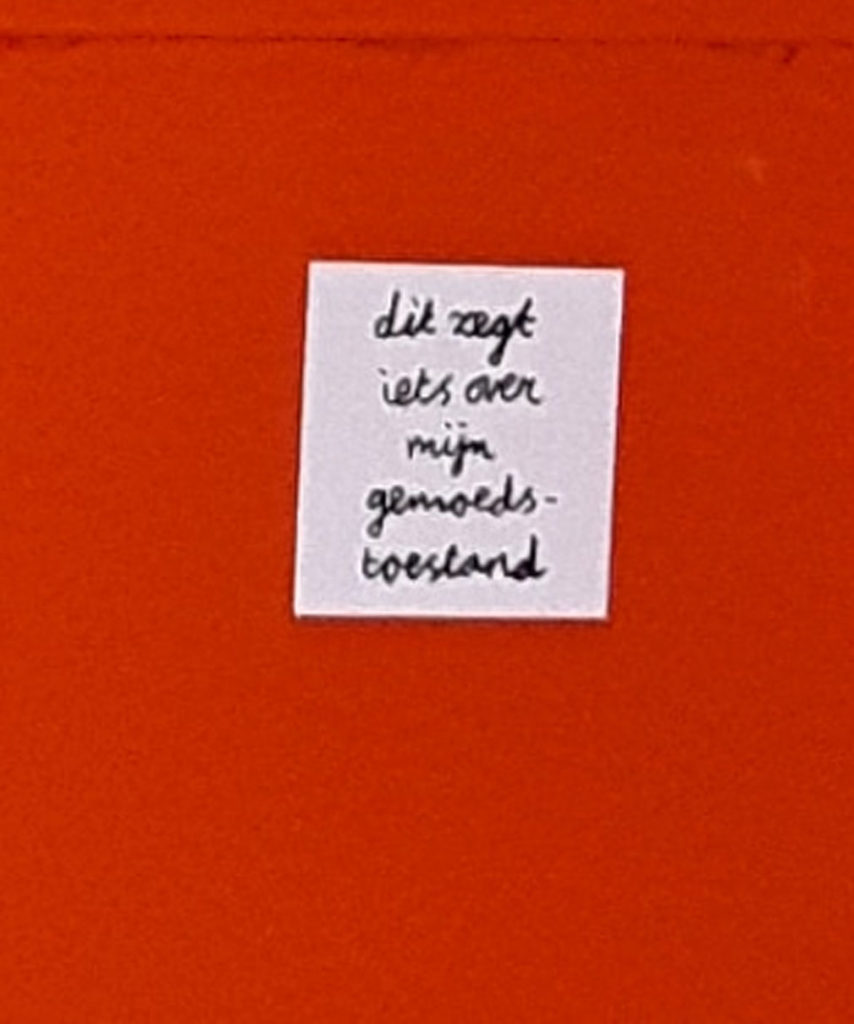 dit zegt
iets over
mijn
gemoeds-
toestand